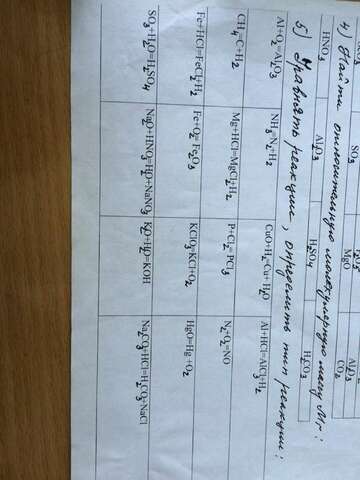 SO₃ Al₂O₃
MgO CO₂
HNO₃ Al₂O₃ H₂SO₄ H₂CO₃
4) Найти относительную молекулярную массу Mr:
5) Уравнять реакции, определить тип реакции:
Al+O₂=Al₂O₃ NH₃=N₂+H₂ CuO+H₂=Cu+H₂O Al+HCl=AlCl₃+H₂
CH₄=C+H₂ Mg+HCl=MgCl₂H₂ P+Cl₂=PCl₃ N₂+O₂=NO
Fe+HCl=FeCl₂+H₂ Fe+O₂=Fe₂O₃ KClO₃=KCl+O₂ HgO=Hg+O₂
SO₃+H₂O=H₂SO₄ Na₂O+HNO₃=H₂O+NaNO₃ K₂O+H₂O=KOH Na₂CO₃+HCl=H₂CO₃+NaCl